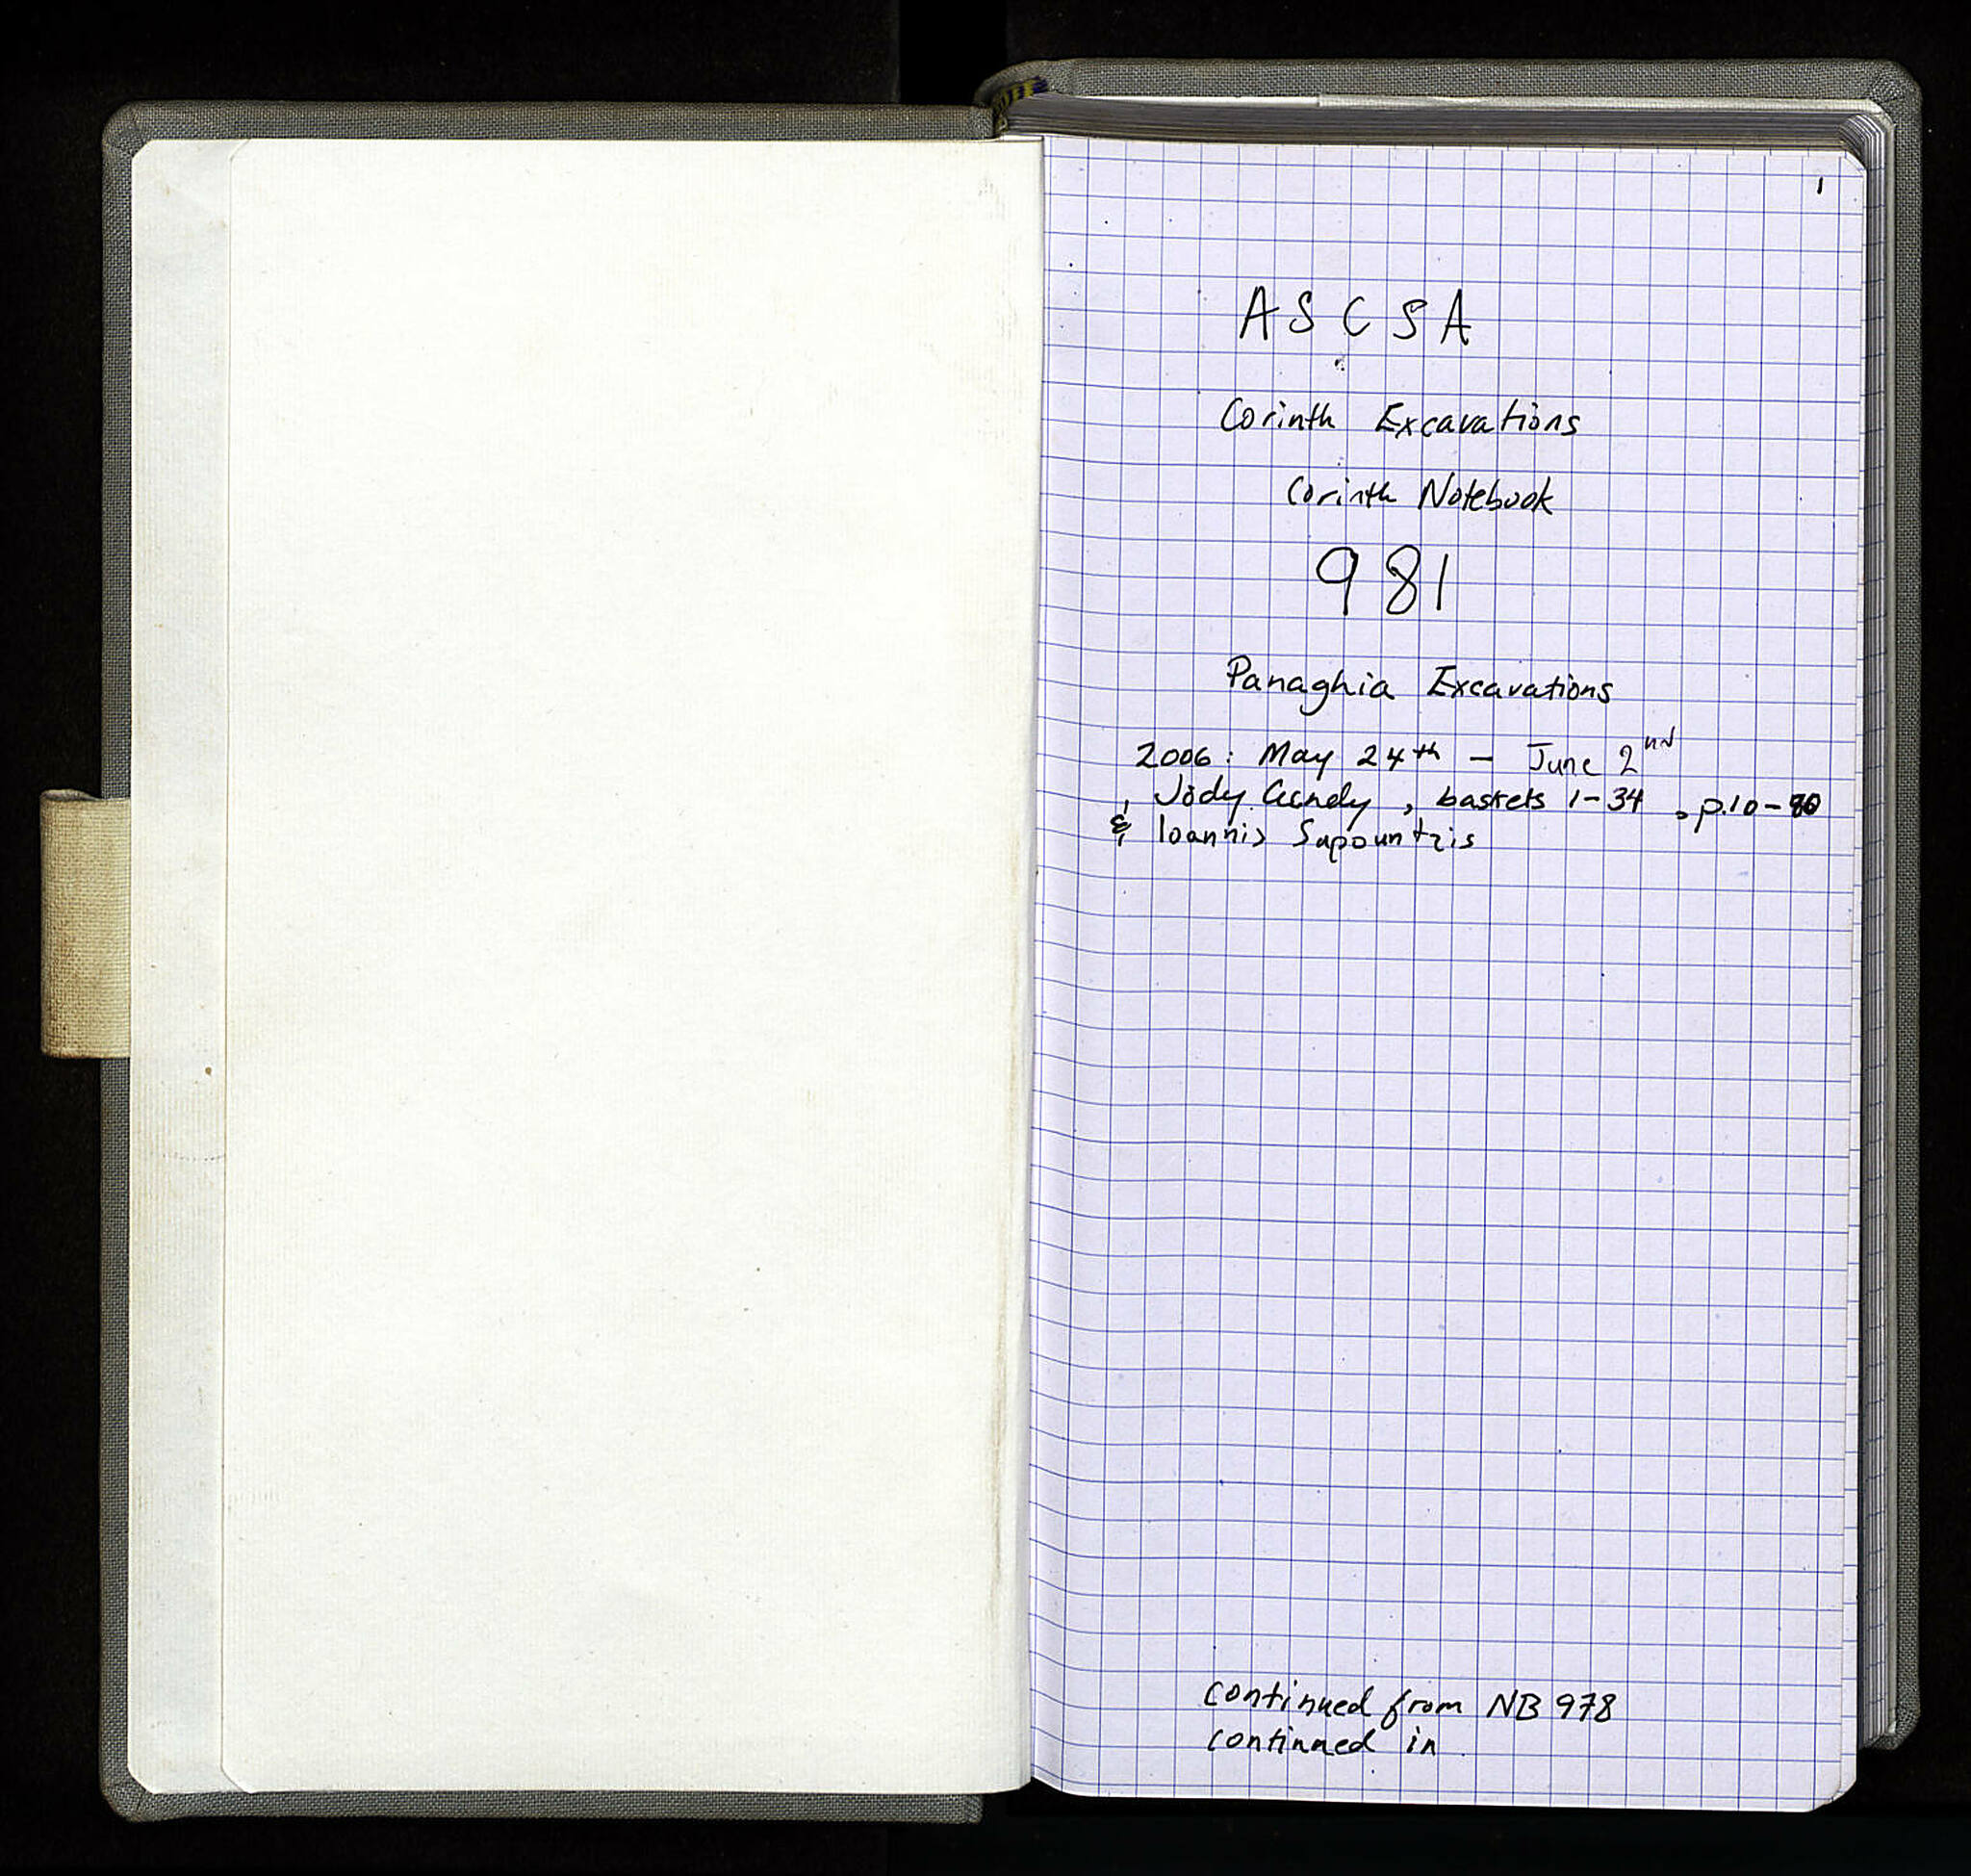 1
ASCSA
Corinth Excavations
Corinth Notebook
981
Panaghia Excavations
2006: May 24th – June 2nd
Jody Cundy, baskets 1-34, p.10-80
& Ioannis Sapountzis
continued from NB 978
continued in